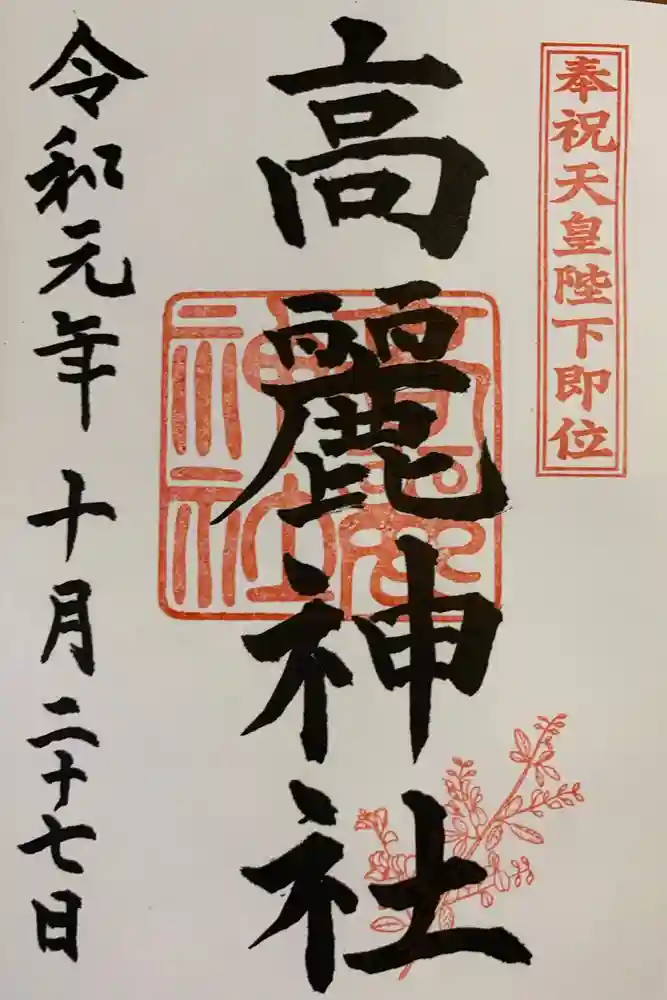 奉祝天皇陛下即位
高麗神社
令和元年十月二十七日